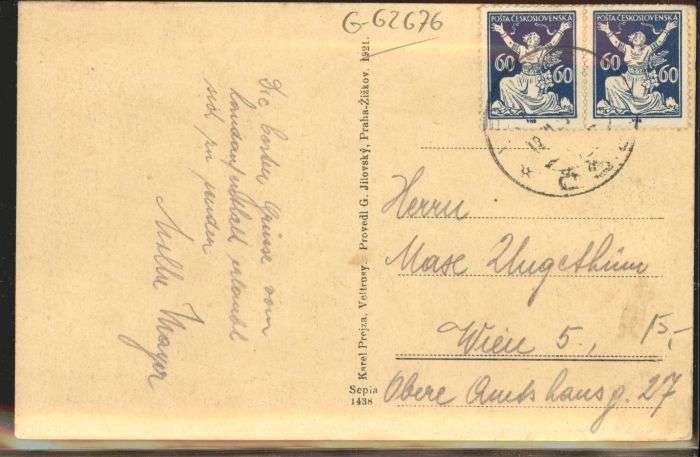 G-62676
POŠTA ČESKOSLOVENSKÁ
60 60
POŠTA ČESKOSLOVENSKÁ
60 60
Die besten Grüsse vom
erlaubt
sich zu senden
Mayer
Karel Prejza, Veltrusy. Provedl G. Jílovský, Praha-Žižkov, 1921.
Sepia
1438
Herrn
Max Ungethüm
Wien 5.,
15,-
Obere Amtshausg. 27